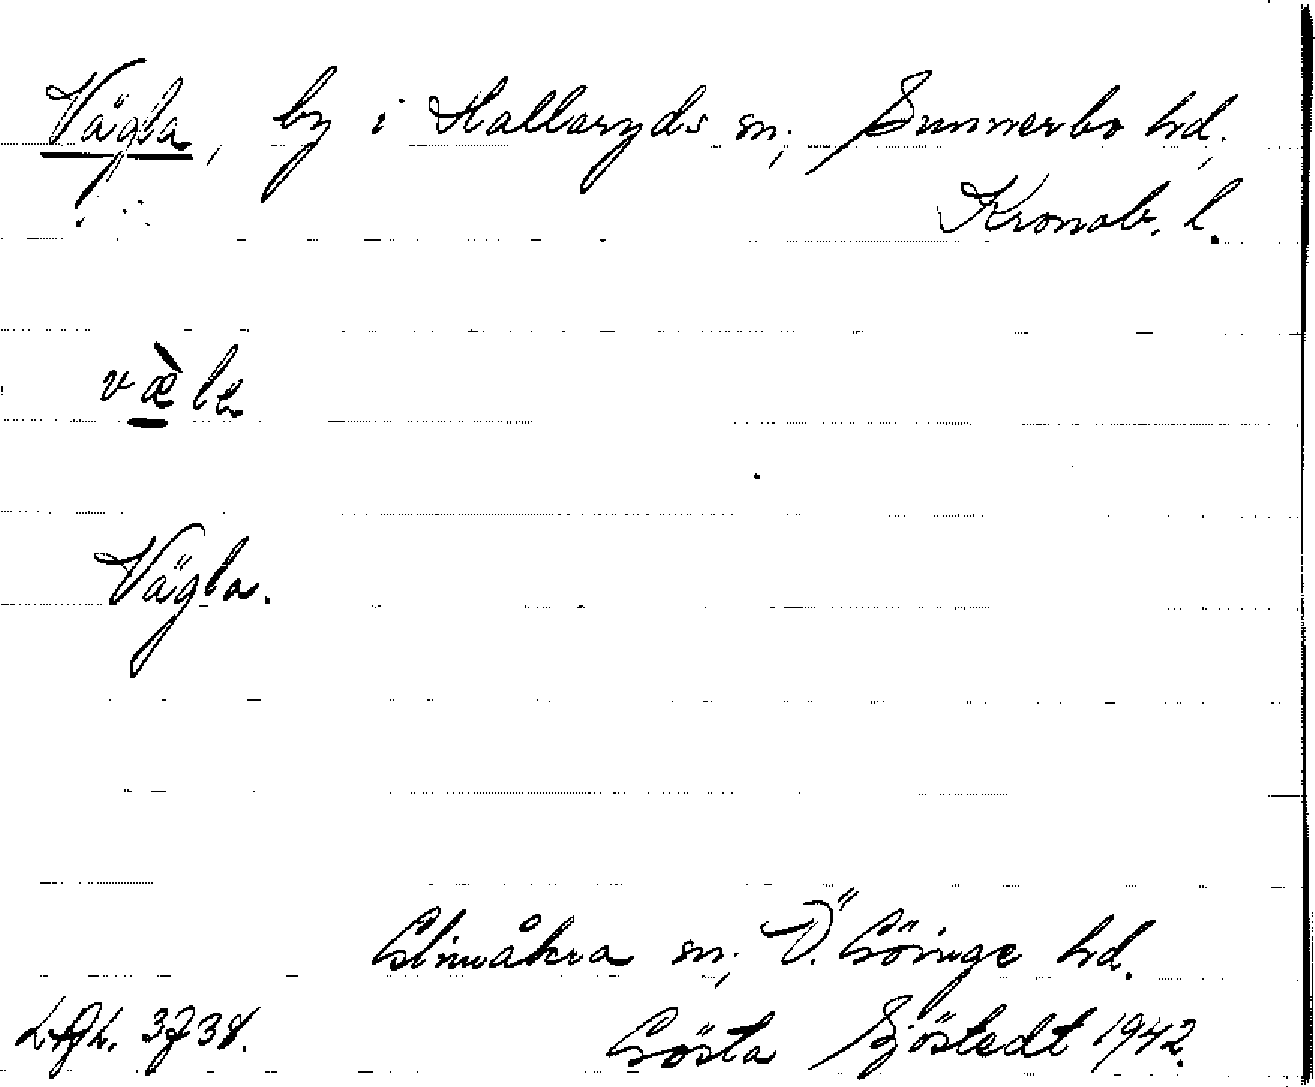 Vägla, by i Hallaryds sn, Sunnerbo hd,
Kronob. l.
væ̀la
Vägla.
Glimåkra sn, Ö. Göinge hd.
Gösta Sjöstedt 1942.